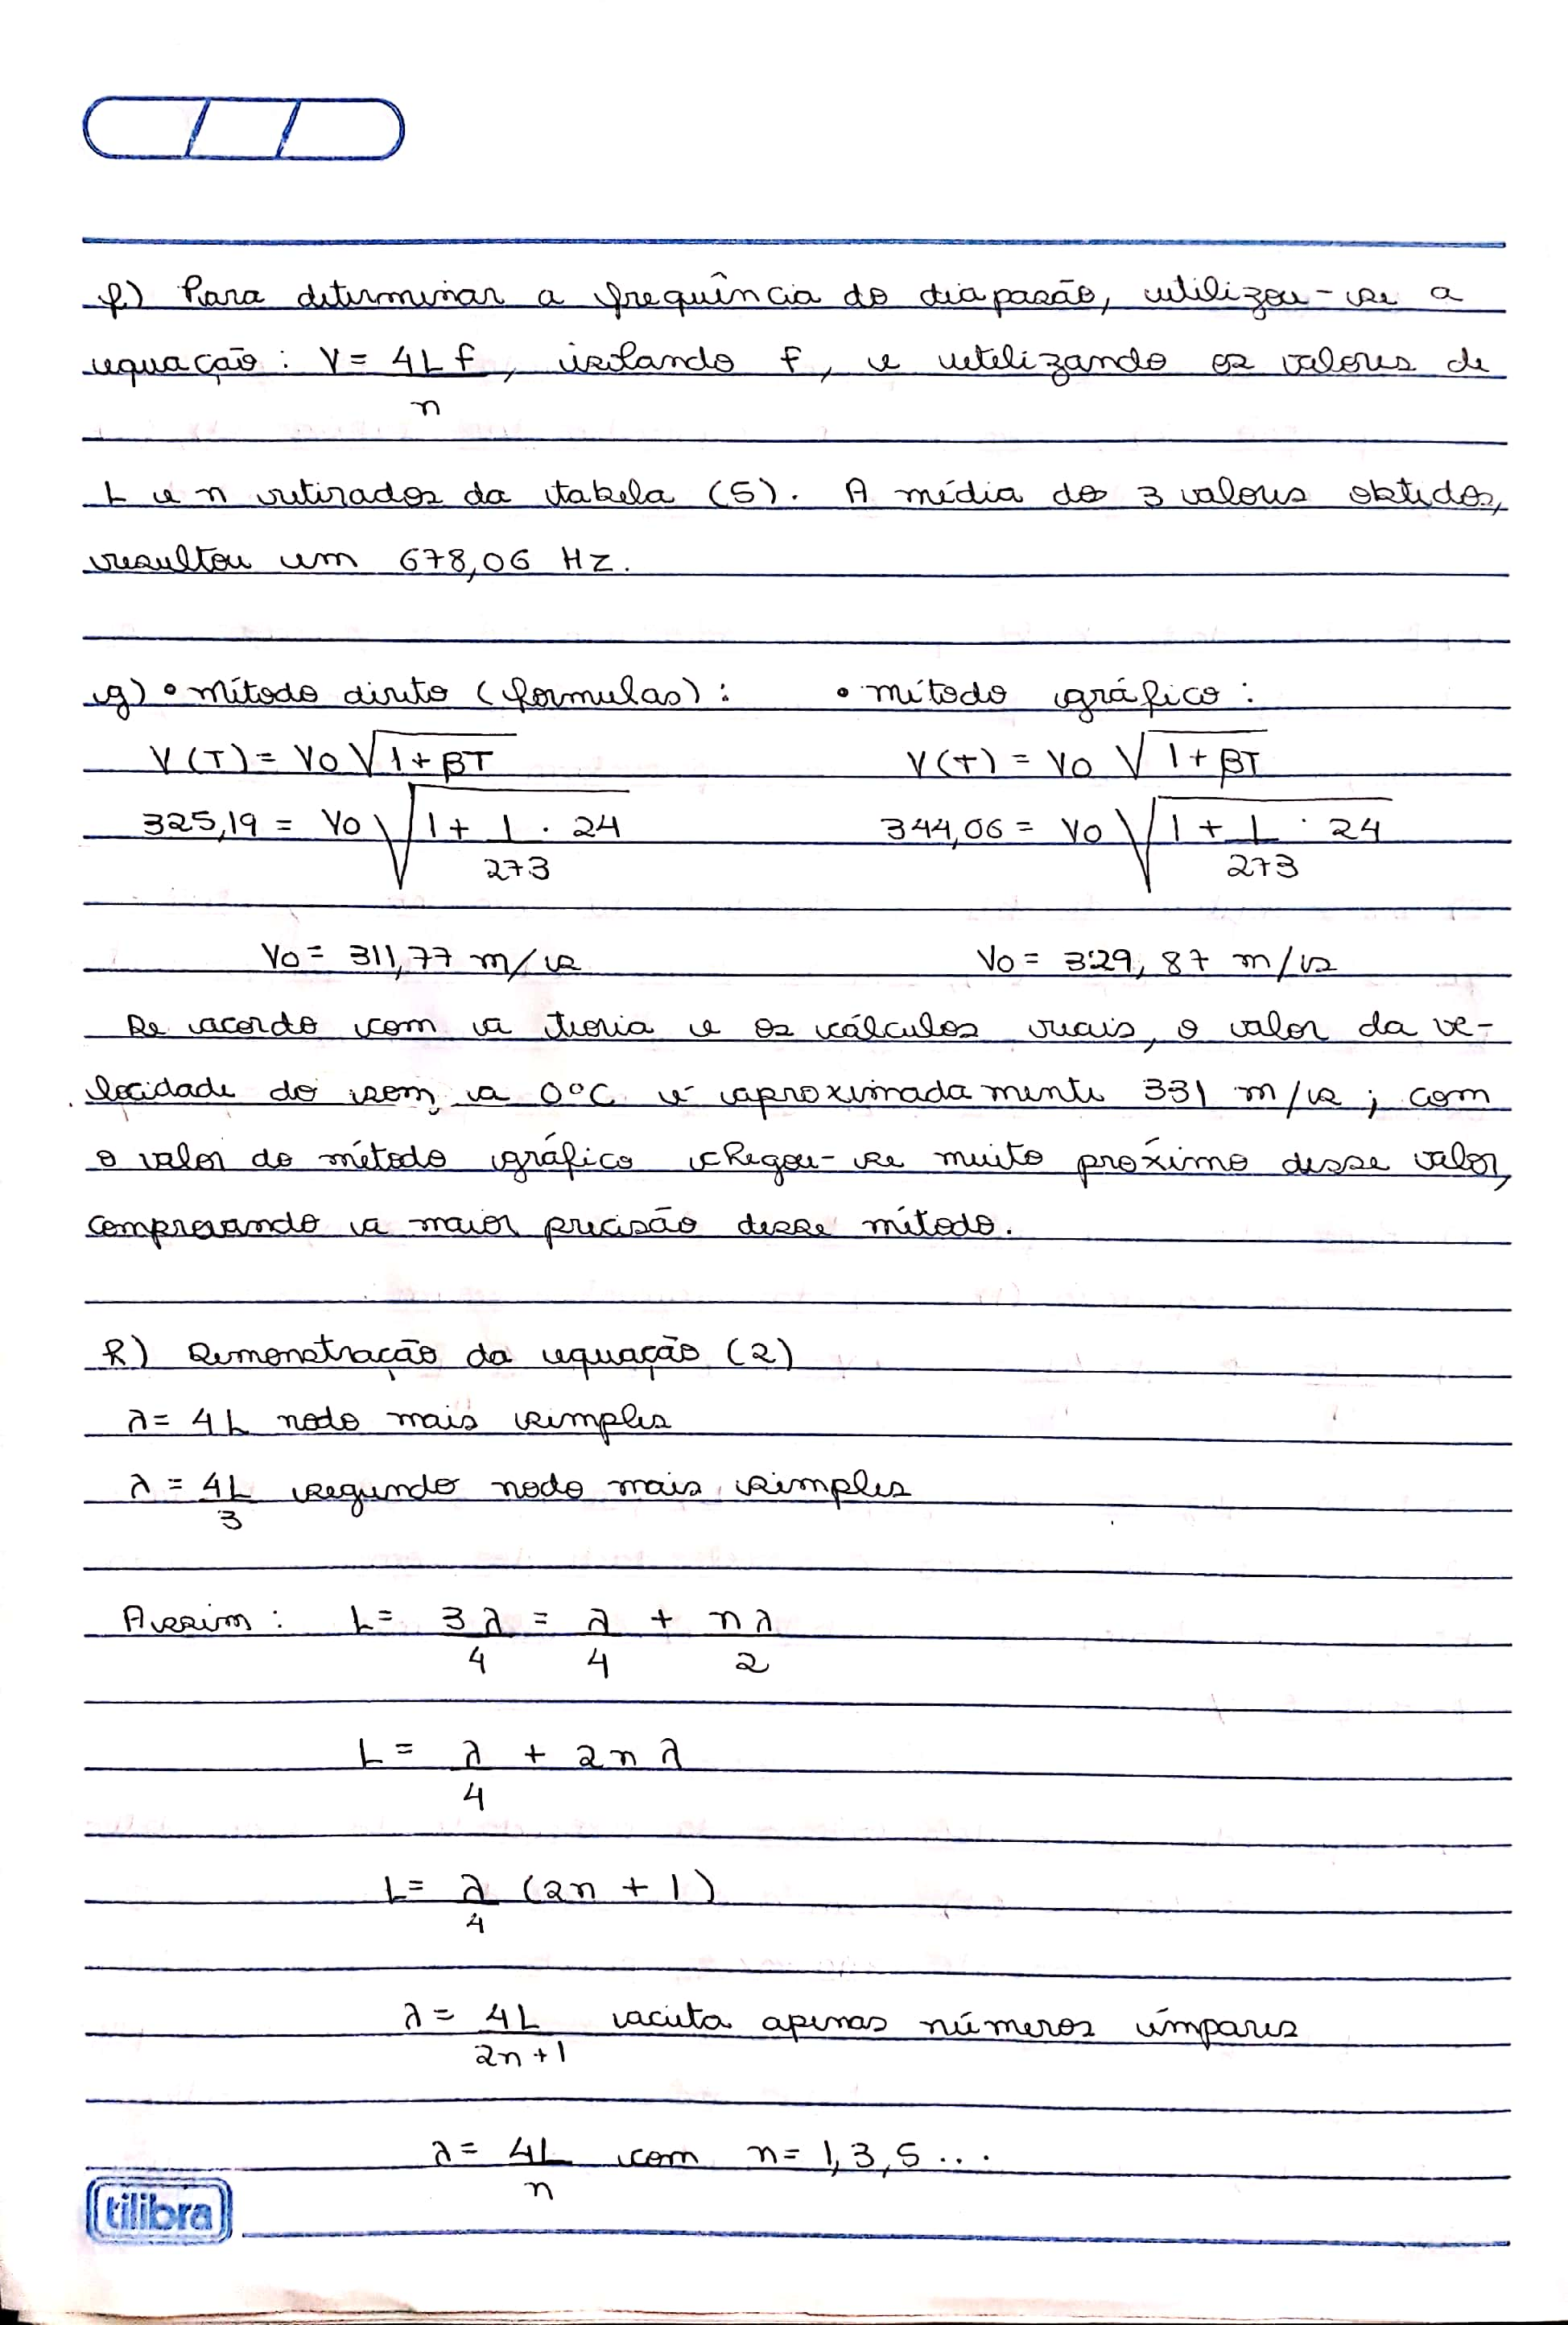 f) Para determinar a frequência do diapasão, utilizou-se a
equação: V = 4Lf/n, isolando f, e utilizando os valores de
L e n retirados da tabela (5). A média do 3 valores obtidos,
resultou em 678,06 Hz.
g) • método direto (formulas): • método gráfico:
V(T) = V0 √(1 + βT) V(T) = V0 √(1 + βT)
325,19 = V0 √(1 + 1/273 · 24) 344,06 = V0 √(1 + 1/273 · 24)
V0 = 311,77 m/s V0 = 329,87 m/s
De acordo com a teoria e os cálculos reais, o valor da ve-
locidade do som, a 0°C é aproximadamente 331 m/s; com
o valor do método gráfico chegou-se muito próximo desse valor,
comprovando a maior precisão desse método.
h) Demonstração da equação (2)
λ = 4L nodo mais simples
λ = 4L/3 segundo nodo mais simples
Assim: L = 3λ/4 = λ/4 + nλ/2
L = λ/4 + 2nλ
L = λ/4 (2n + 1)
λ = 4L/2n+1 aceita apenas números ímpares
λ = 4L/n com n = 1,3,5...
tilibra